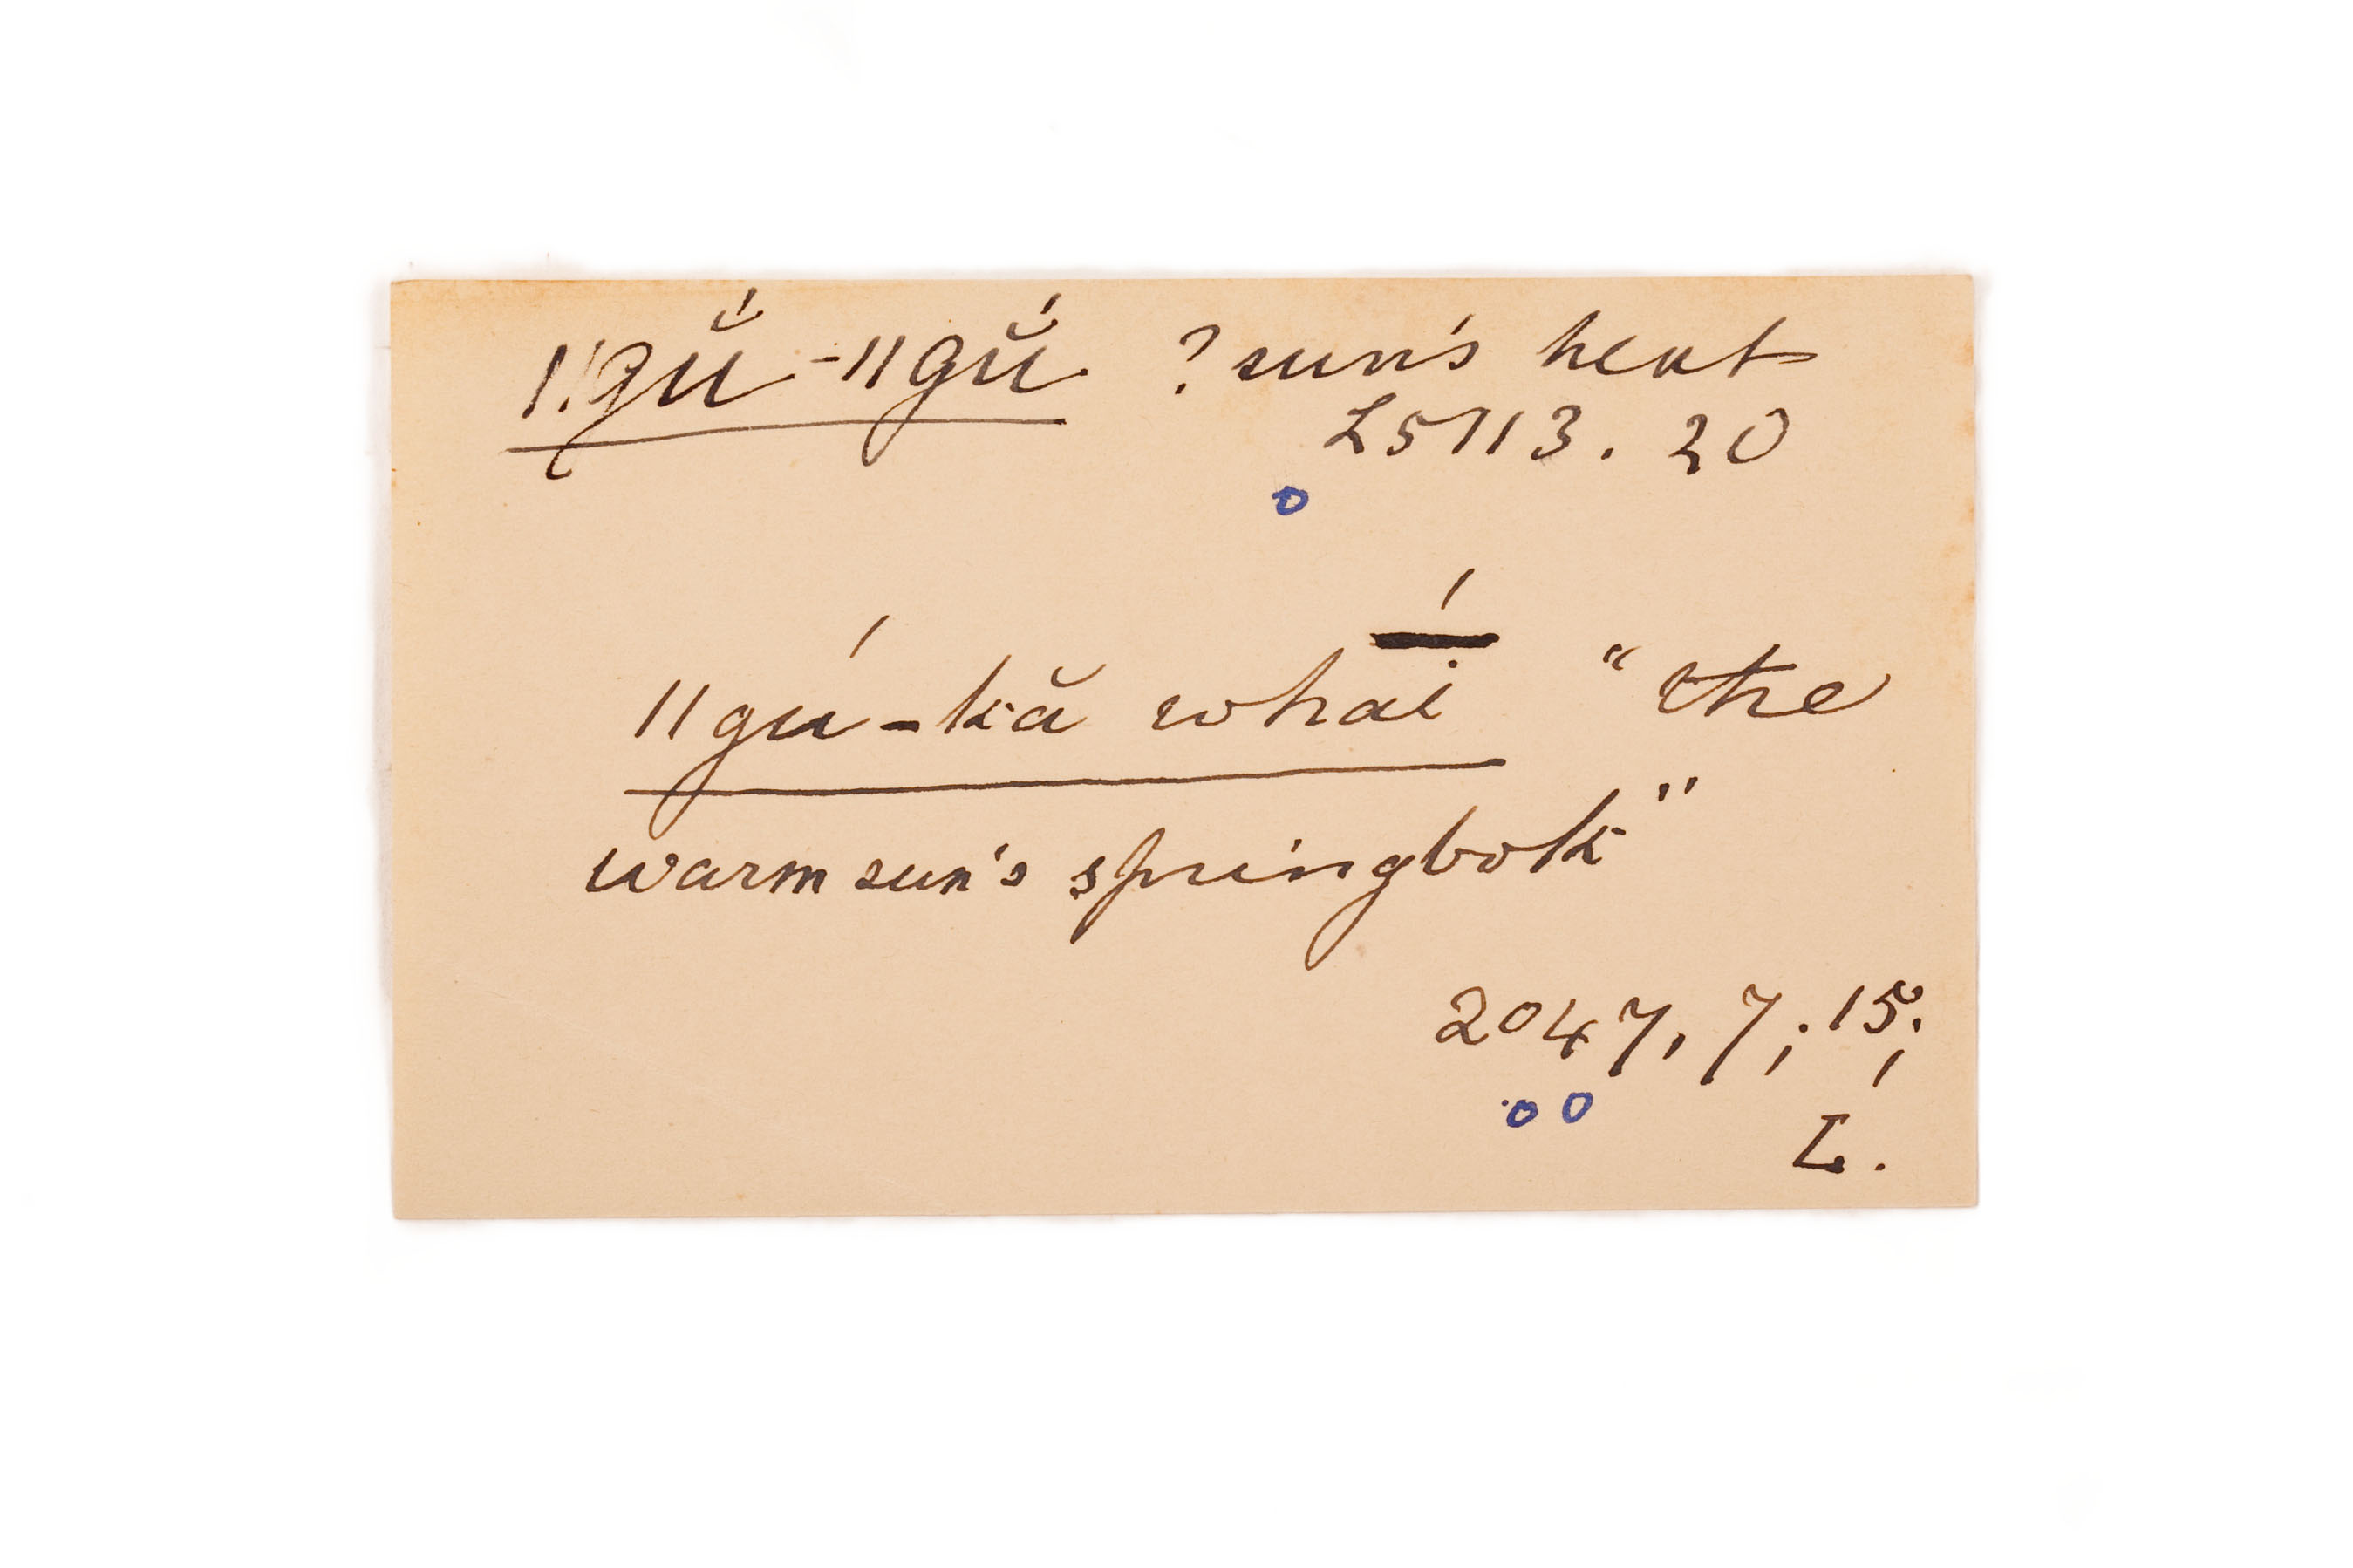 ǁgŭ́-ǁgŭ́. ? sun's heat
L5113. 20
ǁgú-kă whaī́ "the
warm sun's springbok"
2047, 7; 15;
L.